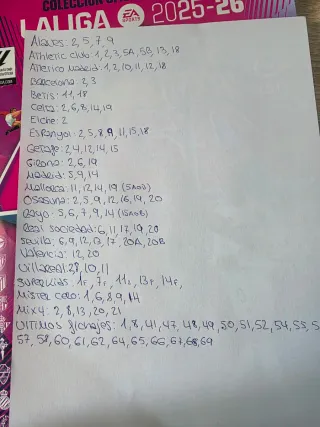 COLECCIÓN
LALIGA EA SPORTS 2025-26
Alaves: 2, 5, 7, 9
Athletic club: 1, 2, 3, 5A, 5B, 13, 18
Atletico Madrid: 1, 2, 10, 11, 12, 18
Barcelona: 2, 3
Betis: 11, 18
Celta: 2, 6, 8, 14, 19
Elche: 2
Espanyol: 2, 5, 8, 9, 11, 15, 18
Getafe: 2, 4, 12, 14, 15
Girona: 2, 6, 19
Madrid: 5, 9, 14
Mallorca: 11, 12, 14, 19
Osasuna: 2, 5, 9, 12, 16, 19, 20
Rayo: 5, 6, 7, 9, 14
Real sociedad: 6, 11, 17, 19, 20
Sevilla: 6, 9, 12, 13, 17, 20A, 20B
Valencia: 12, 20
Villareal: 10, 11
Superkids: 1F, 7F,
Mister cero: 1, 6, 8, 9, 14
Mix4: 2, 8, 13, 20, 21
Ultimos fichajes: 1, 8, 41, 47, 48, 49, 50, 51, 52, 54, 55, 5
57, 58, 60, 61, 62, 64, 65, 66, 67, 68, 69